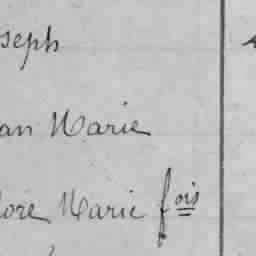 seph
an Marie
ore Marie fois